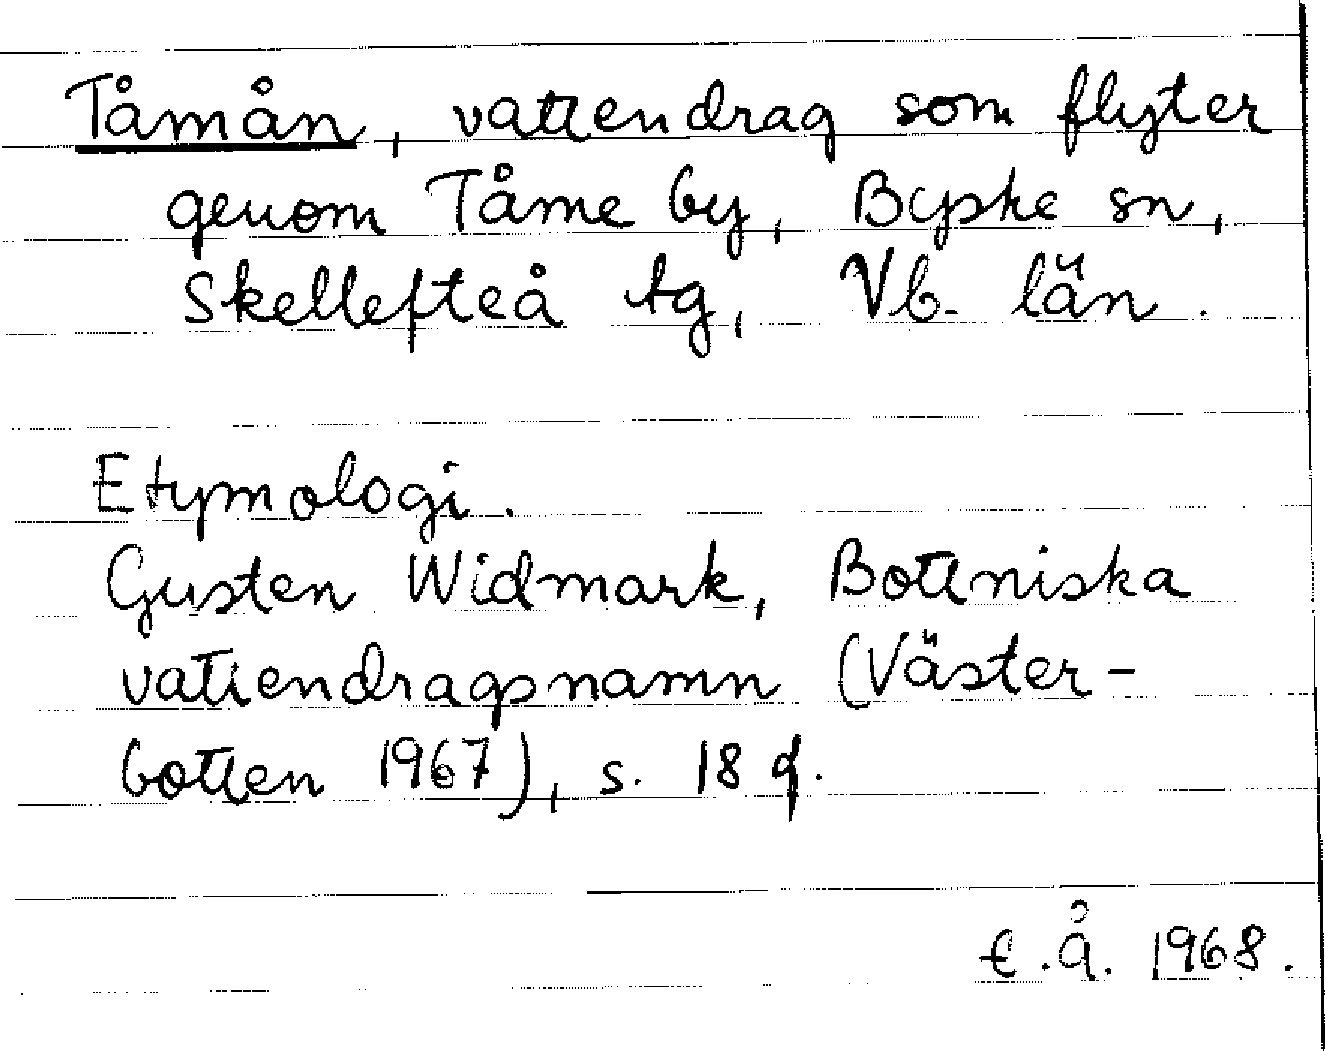 Tåmån, vattendrag som flyter
genom Tåme by, Byske sn,
Skellefteå tg, Vb. län.
Etymologi.
Gusten Widmark, Bottniska
vattendragsnamn (Väster-
botten 1967), s. 18 f.
E.Å. 1968.